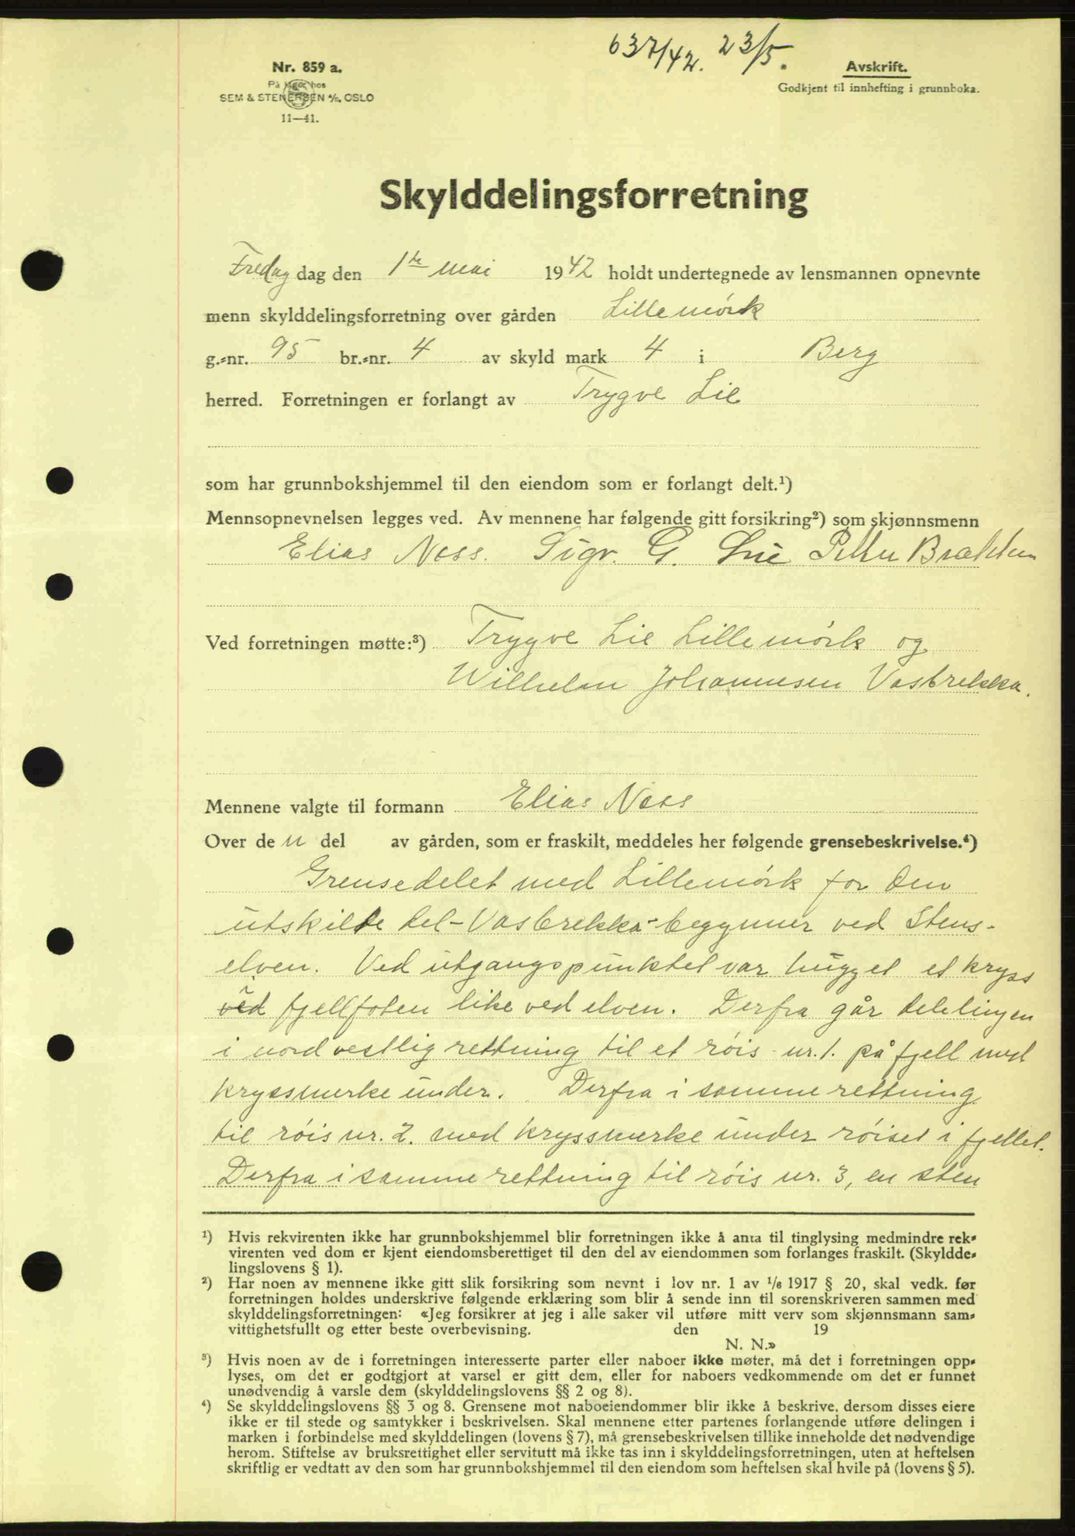 637/42. 23/5.
Nr. 859 a.
På lager hos
SEM & STENERSEN A/S, OSLO
11—41.
Avskrift.
Godkjent til innhefting i grunnboka.
Skylddelingsforretning
Fredag dag den 1ste mai 1942 holdt undertegnede av lensmannen opnevnte
menn skylddelingsforretning over gården Lillemörk
g.-nr. 95 br.-nr. 4 av skyld mark 4 i Berg
herred. Forretningen er forlangt av Trygve Lie
som har grunnbokshjemmel til den eiendom som er forlangt delt.¹)
Mennsopnevnelsen legges ved. Av mennene har følgende gitt forsikring²) som skjønnsmenn
Elias Ness. Sigv. G. Lie Petter Brække
Ved forretningen møtte:³) Trygve Lie Lillemörk og
Wilhelm Johannesen Vasbrekka.
Mennene valgte til formann Elias Ness
Over de n del av gården, som er fraskilt, meddeles her følgende grensebeskrivelse.⁴)
Grensedelet med Lillemörk for den
utskilte del - Vasbrekka - begynner ved Stens-
elven. Ved utgangspunktet var hugget et kryss
ved fjellfoten like ved elven. Derfra går delelinjen
i nordvestlig rettning til et röis nr. 1. på fjell med
kryssmerke under. Derfra i samme rettning
til röis nr. 2. med kryssmerke under röiset i fjellet.
Derfra i samme rettning til röis nr. 3, en sten
¹) Hvis rekvirenten ikke har grunnbokshjemmel blir forretningen ikke å anta til tinglysing medmindre rek-
virenten ved dom er kjent eiendomsberettiget til den del av eiendommen som forlanges fraskilt. (Skyldde-
lingslovens § 1).
²) Har noen av mennene ikke gitt slik forsikring som nevnt i lov nr. 1 av 1/6 1917 § 20, skal vedk. før
forretningen holdes underskrive følgende erklæring som blir å sende inn til sorenskriveren sammen med
skylddelingsforretningen: «Jeg forsikrer at jeg i alle saker vil utføre mitt verv som skjønnsmann sam-
vittighetsfullt og etter beste overbevisning. den 19
N. N.»
³) Hvis noen av de i forretningen interesserte parter eller naboer ikke møter, må det i forretningen opp-
lyses, om det er godtgjort at varsel er gitt dem, eller for naboers vedkommende om det er funnet
unødvendig å varsle dem (skylddelingslovens §§ 2 og 8).
⁴) Se skylddelingslovens §§ 3 og 8. Grensene mot naboeiendommer blir ikke å beskrive, dersom disses eiere
ikke er til stede og samtykker i beskrivelsen. Skal mennene etter partenes forlangende utføre delingen i
marken i forbindelse med skylddelingen (lovens § 7), må grensebeskrivelsen tillike inneholde det nødvendige
herom. Stiftelse av bruksrettighet eller servitutt må ikke tas inn i skylddelingsforretningen, uten at heftelsen
skriftlig er vedtatt av den som har grunnbokshjemmel til den eiendom som heftelsen skal hvile på (lovens § 5).